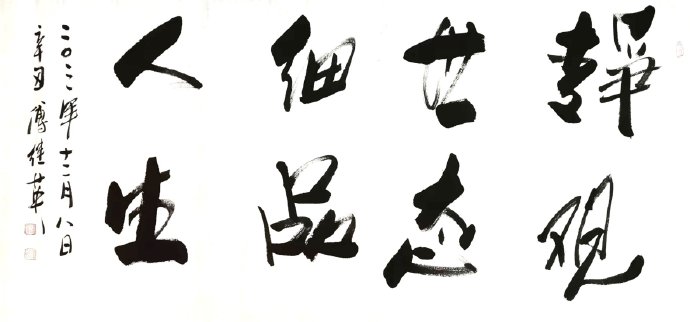 静观
世态
细品
人生
二〇二一年十二月八日
辛丑 傅继英